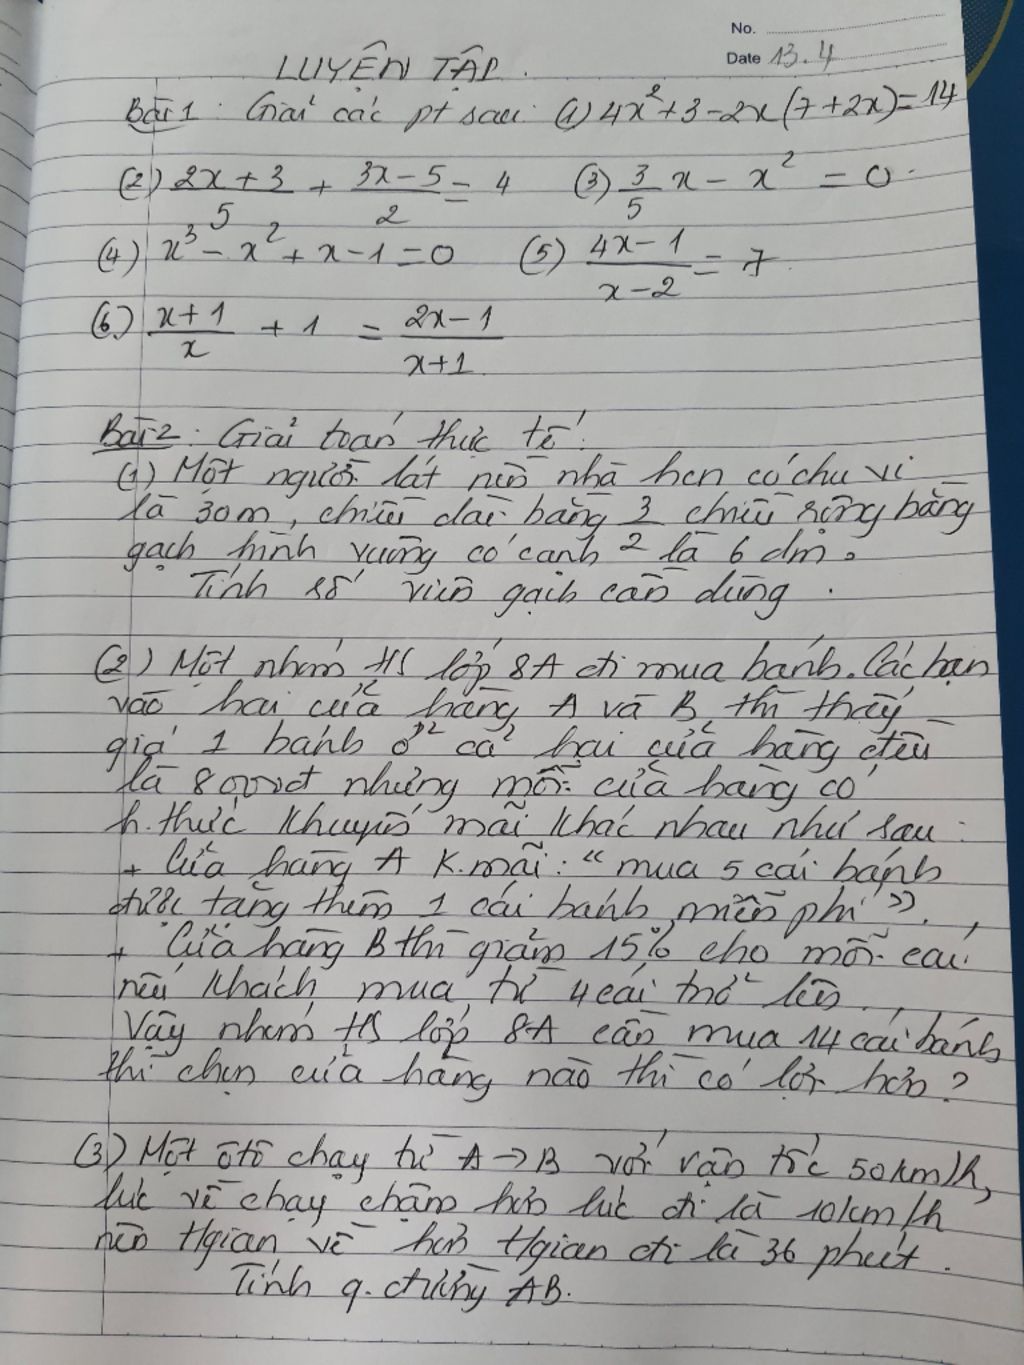 No.
Date 13.4
LUYỆN TẬP.
Bài 1: Giải các pt sau: (1) 4x²+3-2x(7+2x)=14
(2) (2x+3)/5 + (3x-5)/2 = 4 (3) 3/5 x - x² = 0.
(4) x³ - x² + x - 1 = 0 (5) (4x-1)/(x-2) = 7
(6) (x+1)/x + 1 = (2x-1)/(x+1)
Bài 2: Giải toán thực tế:
(1) Một người lát nền nhà hcn có chu vi
là 30m, chiều dài bằng 3/2 chiều rộng bằng
gạch hình vuông có cạnh là 6 dm.
Tính số viên gạch cần dùng.
(2) Một nhóm HS lớp 8A đi mua bánh. Các bạn
vào hai cửa hàng A và B thì thấy
giá 1 bánh ở cả hai cửa hàng đều
là 8000đ nhưng mỗi cửa hàng có
h.thức khuyến mãi khác nhau như sau:
+ Cửa hàng A K.mãi: "mua 5 cái bánh
được tặng thêm 1 cái bánh miễn phí".
+ Cửa hàng B thì giảm 15% cho mỗi cái
nếu khách mua từ 4 cái trở lên.
Vậy nhóm HS lớp 8A cần mua 14 cái bánh
thì chọn cửa hàng nào thì có lợi hơn?
(3) Một ôtô chạy từ A → B với vận tốc 50km/h,
lúc về chạy chậm hơn lúc đi là 10km/h
nên t/gian về hơn t/gian đi là 36 phút.
Tính q.đường AB.